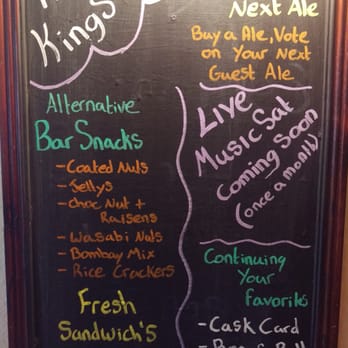 Kings
Alternative
Bar Snacks
- Coated Nuts
- Jellys
- Choc Nut +
Raisens
- Wasabi Nuts
- Bombay Mix
- Rice Crackers
Fresh
Sandwich's
Next Ale
Buy a Ale, Vote
on Your Next
Guest Ale
Live
Music Sat
Coming Soon
(once a month)
Continuing
Your
Favorits
- Cask Card